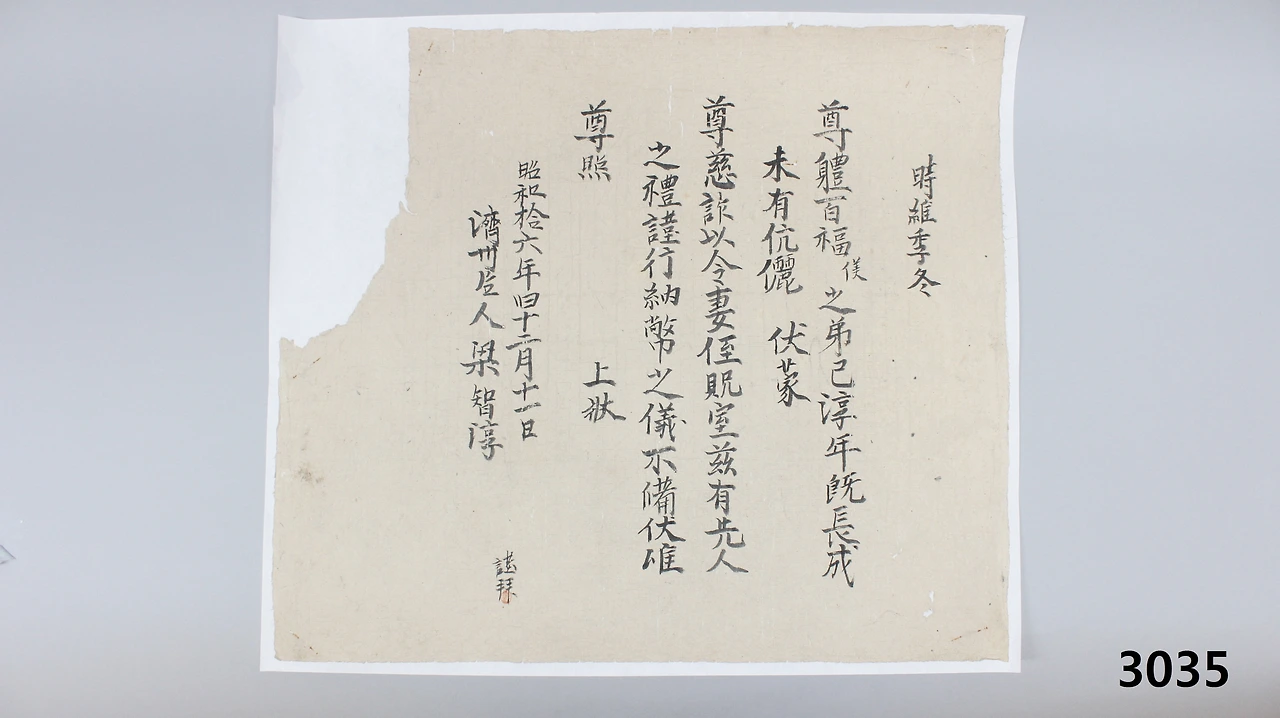 時維季冬
尊軆百福 僕之弟已淳年既長成
未有伉儷 伏蒙
尊慈許以令妻侄貺室玆有先人
之禮謹行納幣之儀不備伏惟
尊照 上狀
昭和拾六年旧十二月十一日
濟州后人 梁智淳
謹拜
3035